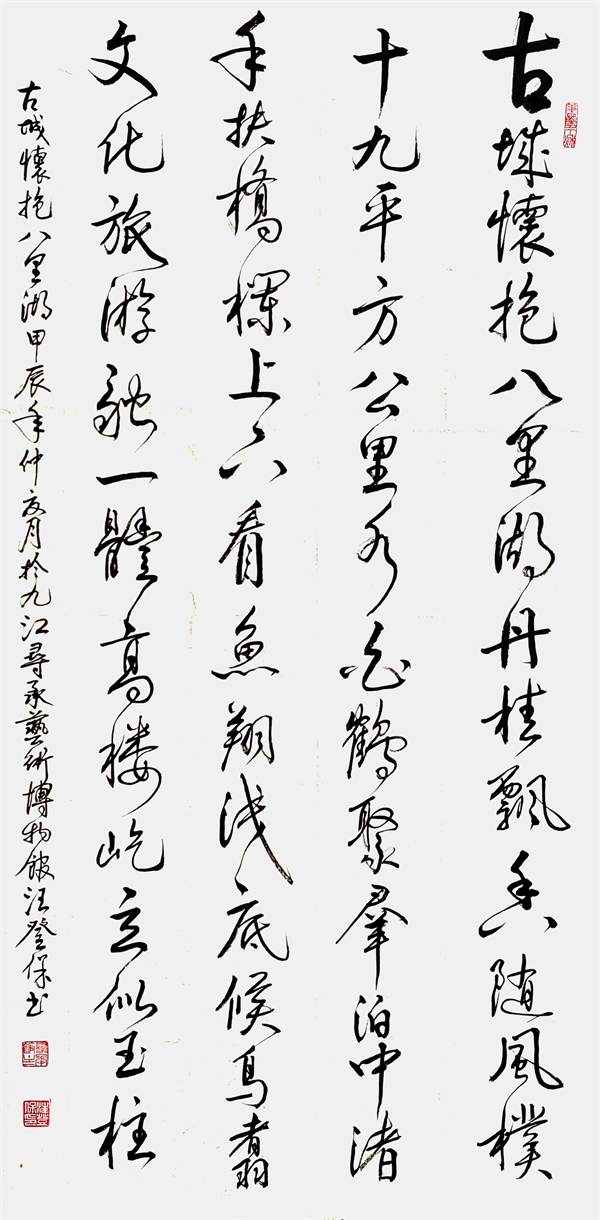 古城懷抱八里湖丹桂飄香随風樸
十九平方公里水白鶴聚羣泊中渚
手扶橋欄上下看魚翔浅底候鳥翥
文化旅游融一體高楼屹立似玉柱
古城懷抱八里湖甲辰年仲夏月於九江尋承藝術博物館汪登保书